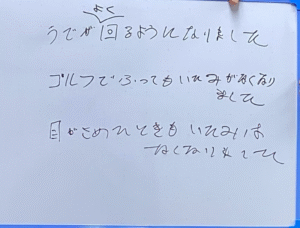 よく
うでが回るようになりました
ゴルフでふってもいたみがなくなり
ました
目がさめたときもいたみは
なくなりました